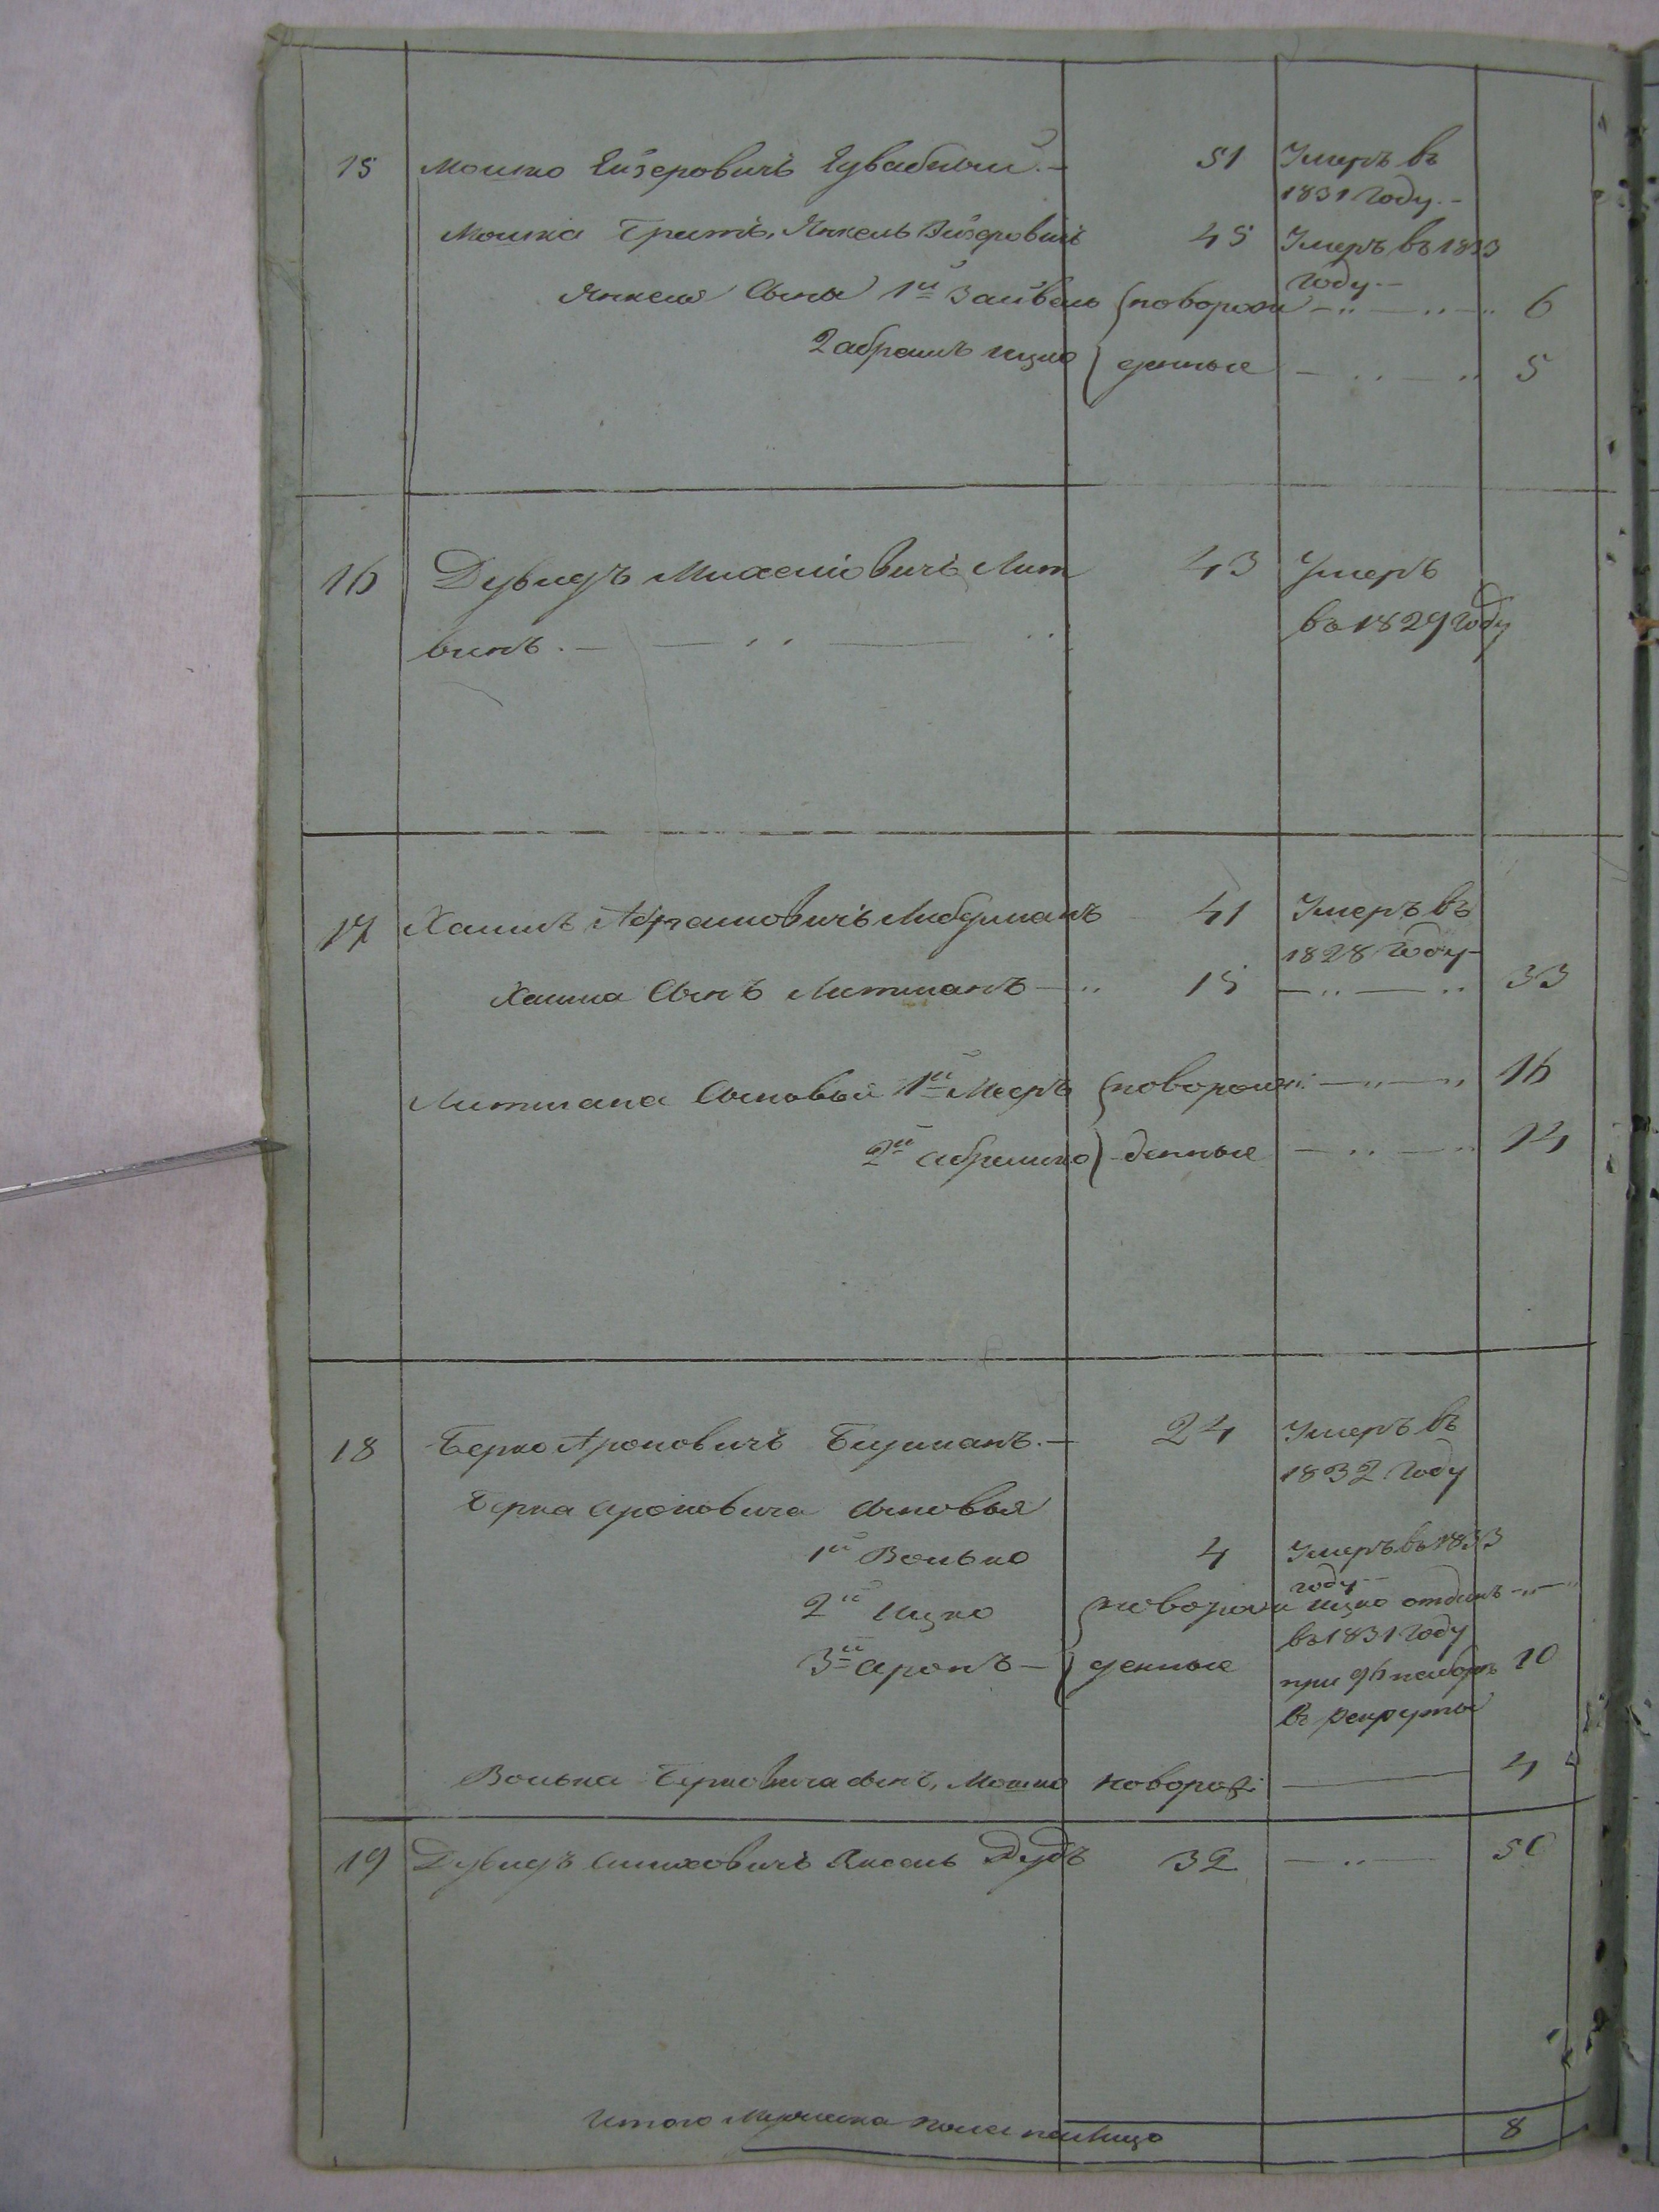 15 Мошко Ейзеровичъ 51 Умеръ въ
1831 году.
Мошка Братъ, Янкель Эйзеровичъ 45 Умеръ въ 1833
году
Янкеля Сына 1й Зайвель новорож 6
2 Абрамъ Ицко денные 5
16 Дувидъ Михелiовичъ Лит 43 Умеръ
винъ. въ 1829 году
17 Хаимъ Абрамовичъ Либерманъ 41 Умеръ въ
1828 году
Хаима Сынъ Литманъ 15 33
Литмана Сыновья 1й Мееръ новорож: 16
2й Абрамко денные 14
18 Берко Ароновичъ 24 Умеръ въ
1832 году
Берка Ароновича Сыновья
1й Волько 4 Умеръ въ 1833
году
2й Ицко новорож Ицко отданъ
въ 1831 году
3й Аронъ денные при 96 наборѣ 10
в рекруты
Волька Берковича сынъ, Мошко новорож: 4
19 Дувидъ 32 50
Итого Мужеска пола на лицо 8